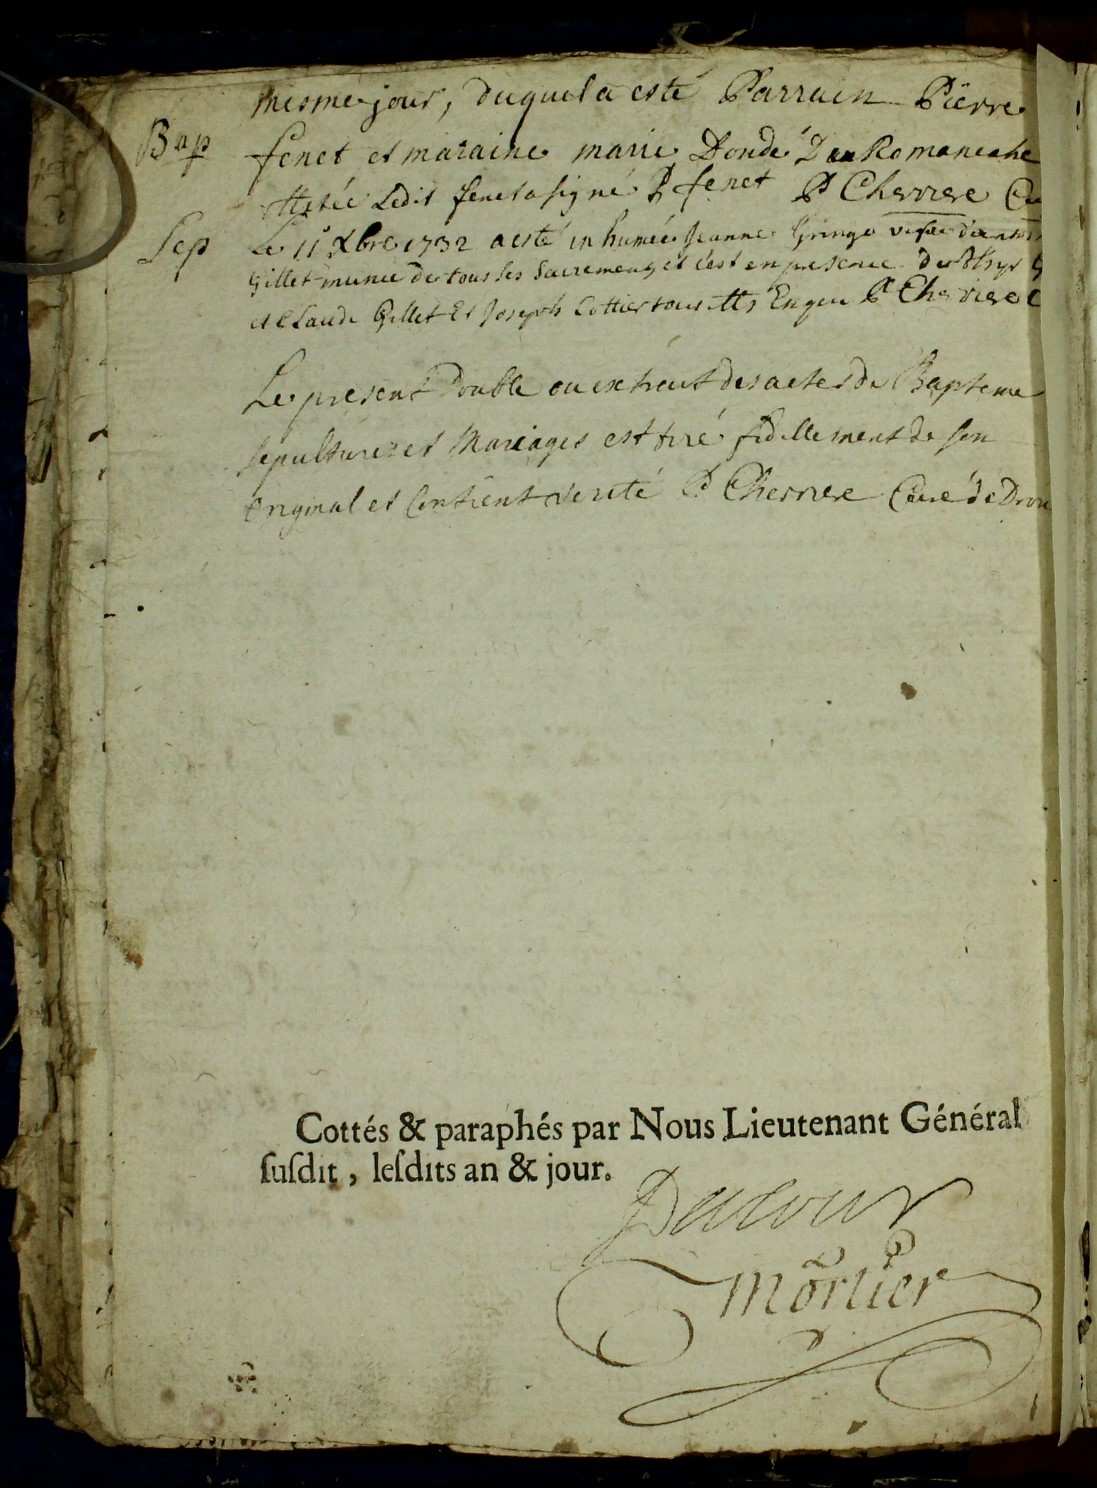 mesme jour, duquel a esté Parrain Pierre
Bap fenet et maraine marie Dondé Romaneche
ledit fenet a signé P fenet P Cherrier
Sep Le 11 Xbre 1732 a esté inhumée Jeanne
Gillet munie de tous les Sacrements et c'est en presence de
et Claude Gillet Et Joseph Cottier tous P Cherrier
Le present Double ou extrait des actes de Bapteme
sepultures et Mariages est tiré fidellement de son
Original et Contient verité P Cherrier Curé de
Cottés & paraphés par Nous Lieutenant Général
ſuſdit, leſdits an & jour.
Mortier